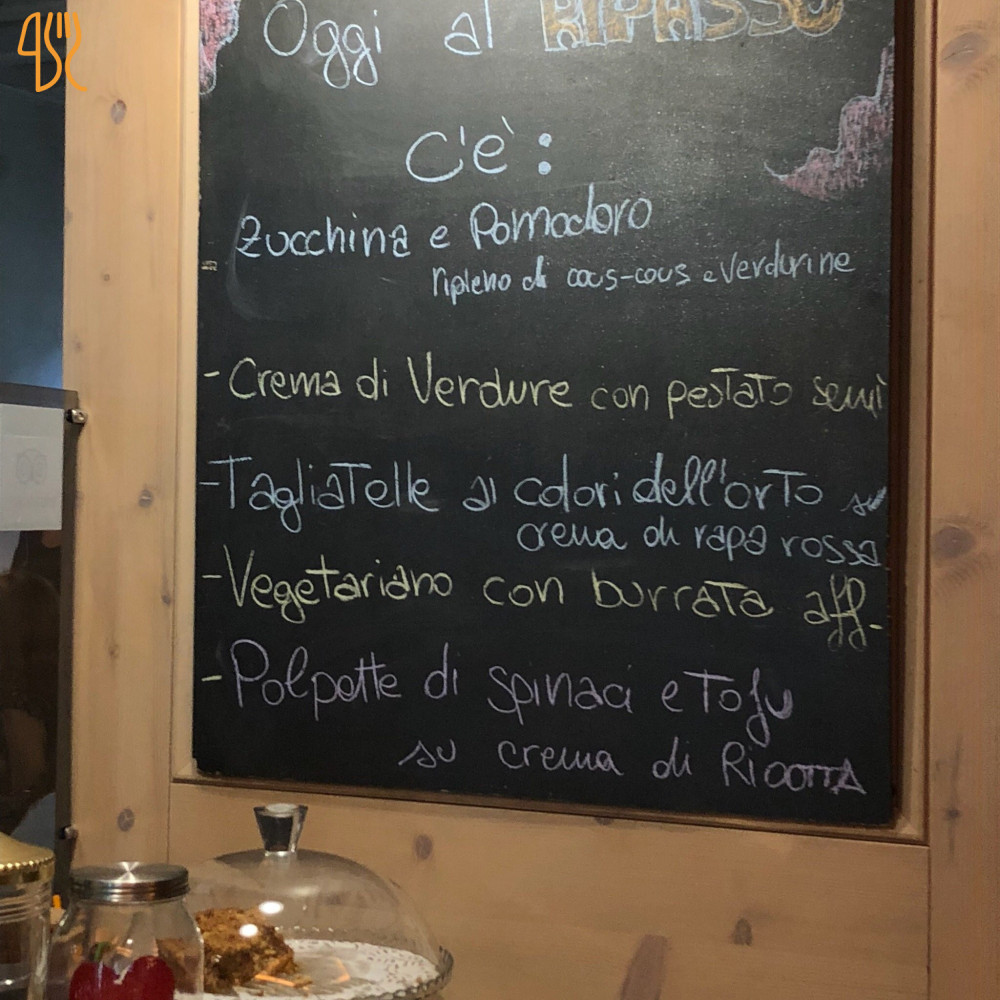 Oggi al RIPASSO
C'è:
Zucchina e Pomodoro
ripieno di cous-cous e verdurine
- Crema di Verdure con pestato semi
- Tagliatelle ai colori dell'orto su
crema di rapa rossa
- Vegetariano con burrata aff.
- Polpette di spinaci e Tofu
su crema di RicoTTA